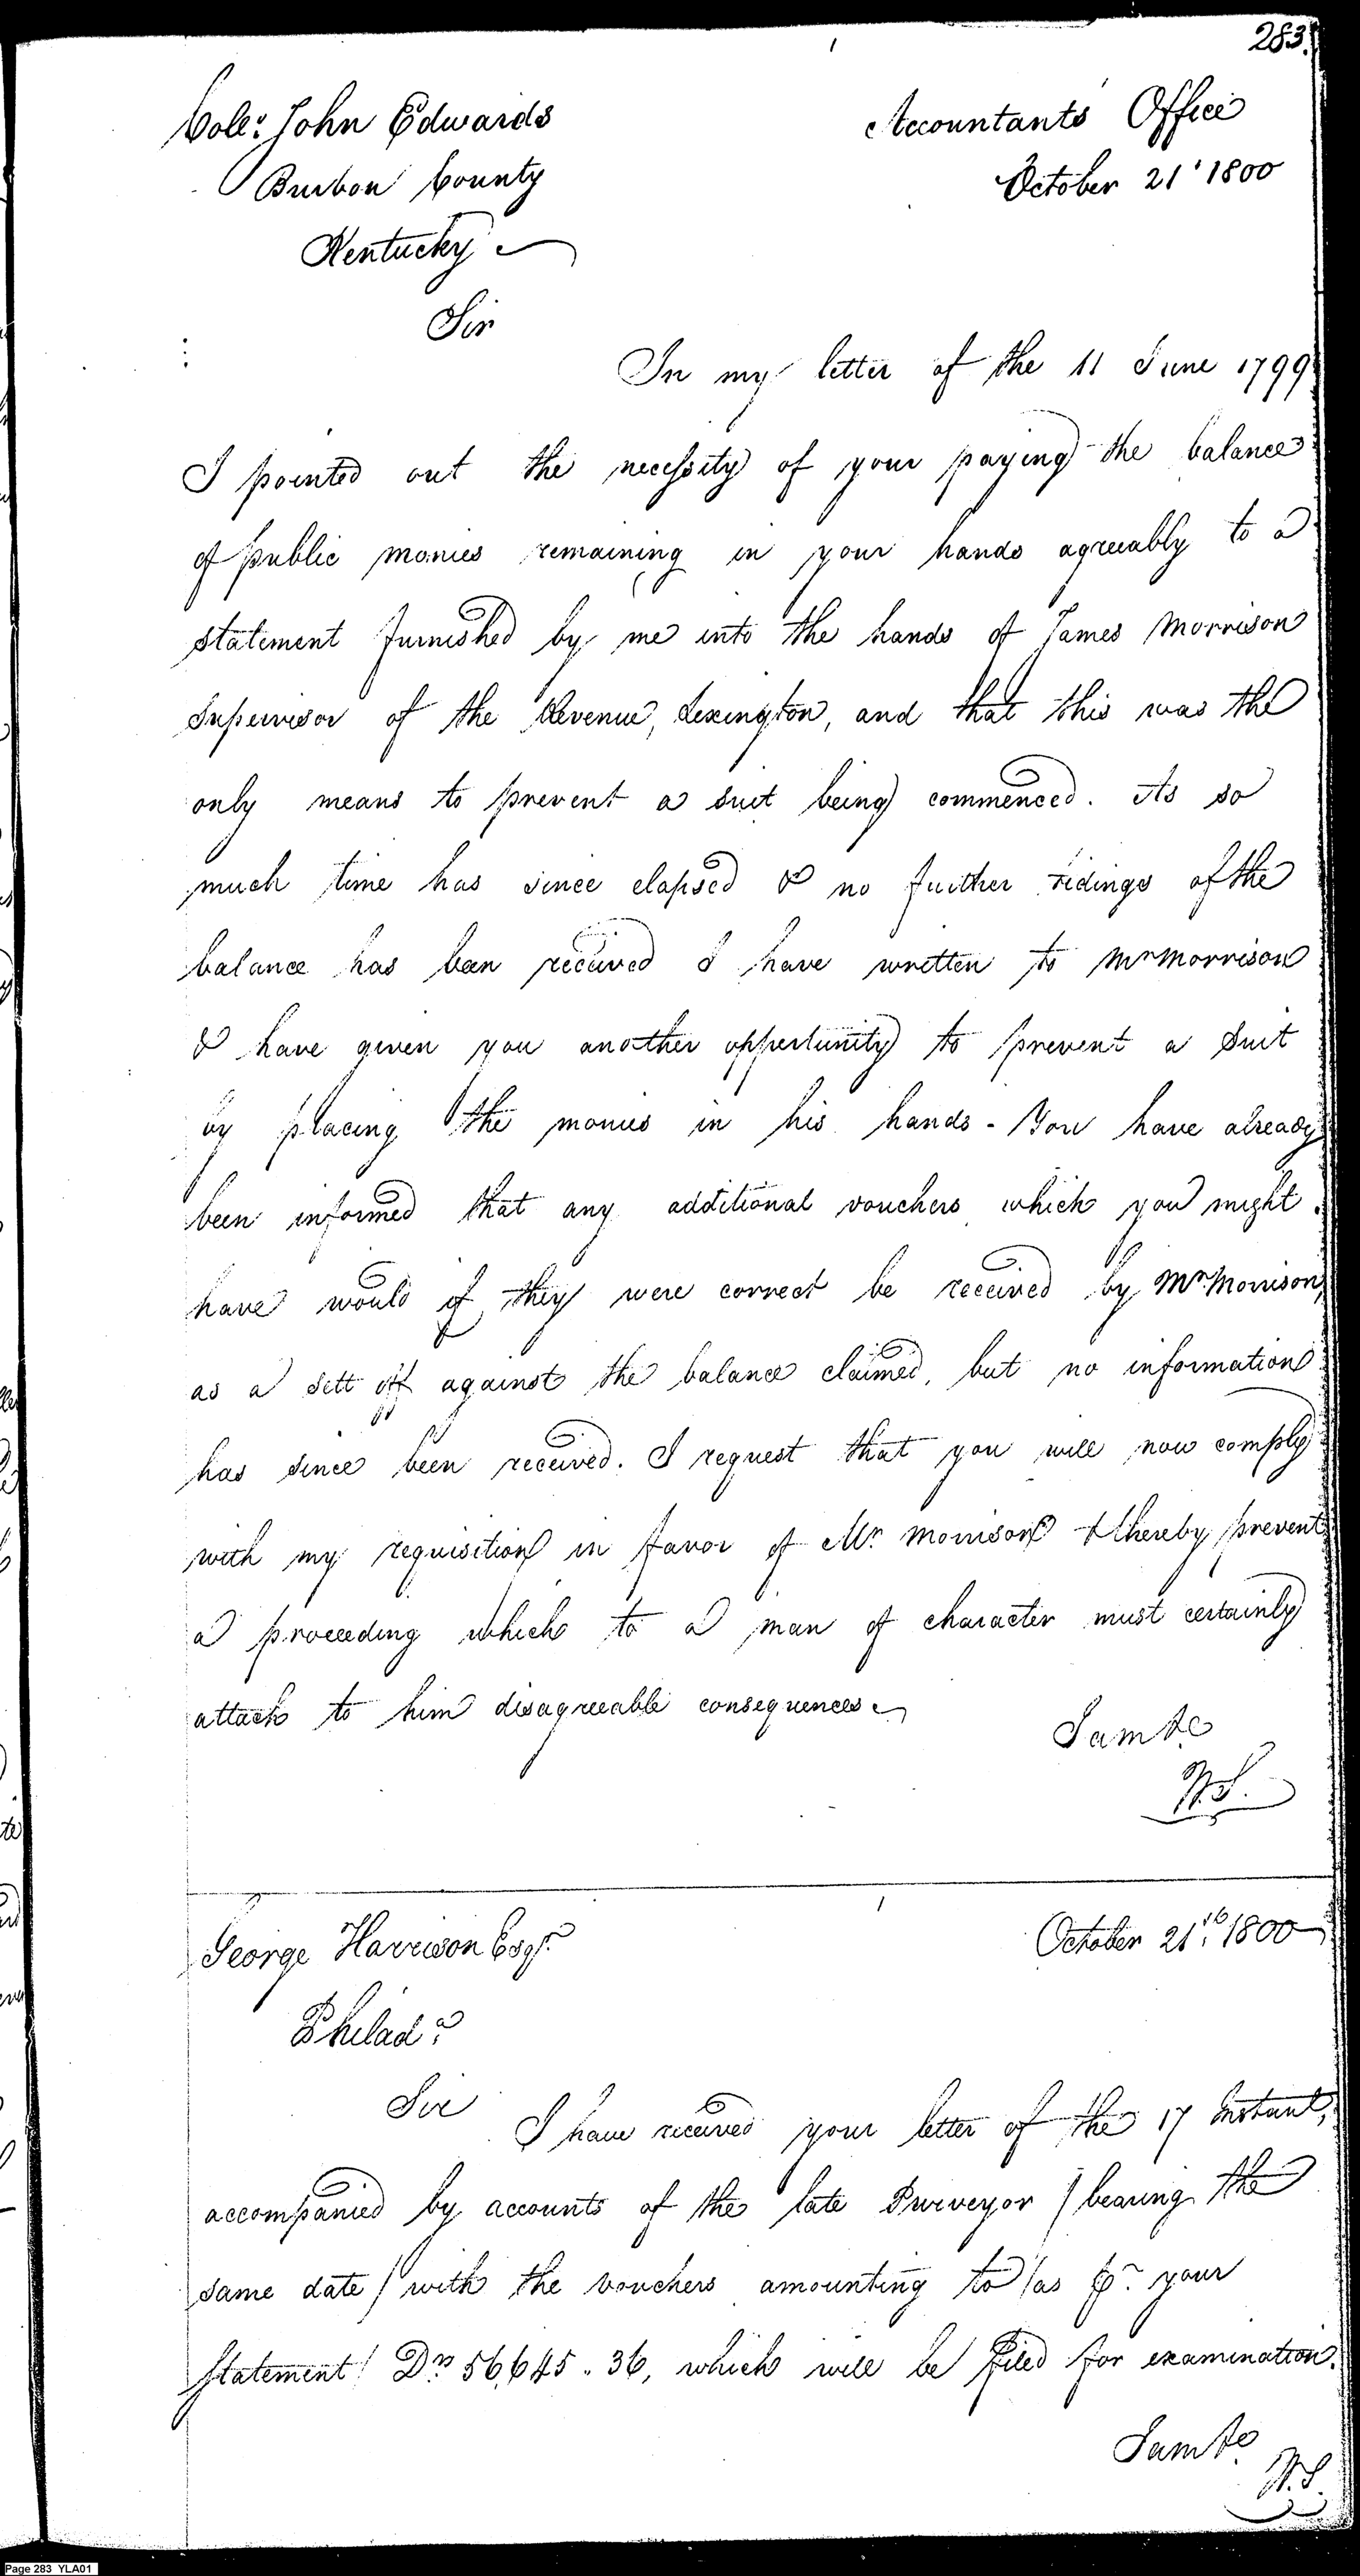 283.
Colo. John Edwards
Accountants Office
Burbon County
October 21. 1800
Kentucky
Sir
In my letter of the 11 June 1799
I pointed out the necessity of your paying the balance
of public monies remaining in your hands agreeably to a
statement furnished by me into the hands of James Morrison
Supervisor of the Revenue, Lexington, and that this was the
only means to prevent a suit being commenced. As so
much time has since elapsed & no further tidings of the
balance has been received I have written to Mr Morrison
& have given you another oppertunity to prevent a Suit
by placing the monies in his hands - You have already
been informed that any additional vouchers which you might
have would if they were correct be received by Mr. Morrison,
as a sett off against the balance claimed, but no information
has since been received. I request that you will now comply
with my requisition in favor of Mr. Morrison & thereby prevent
a proceeding which to a man of character must certainly
attach to him disagreeable consequences
I am &c
W.S.
George Harrison Esqr.
October 21th. 1800
Philada.
Sir
I have received your letter of the 17 Instant,
accompanied by accounts of the late Purveyor / bearing the
same date / with the vouchers amounting to / as pr. your
Statement / Drs 56,645.36, which will be filed for examination.
I am &c
W.S.
Page 283 YLA01